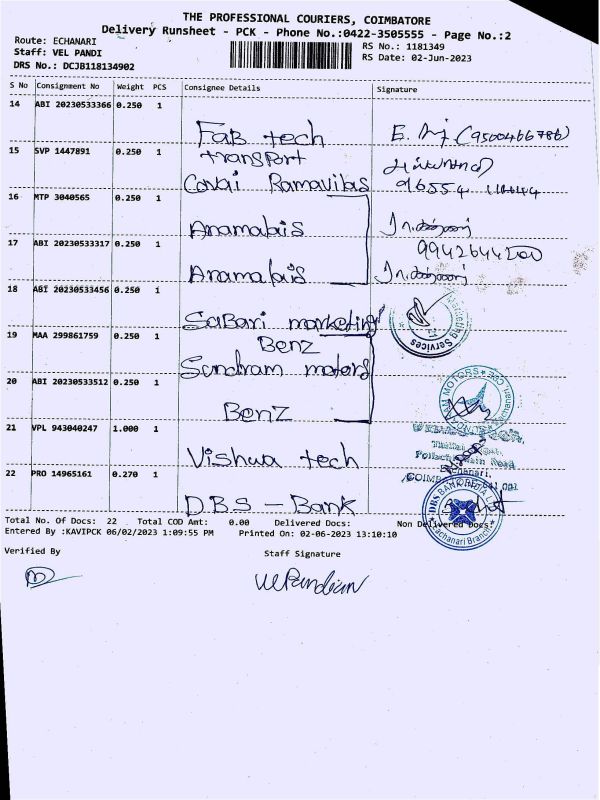 THE PROFESSIONAL COURIERS, COIMBATORE
Delivery Runsheet - PCK - Phone No.:0422-3505555 - Page No.:2
Route: ECHANARI
RS No.: 1181349
Staff: VEL PANDI
RS Date: 02-Jun-2023
DRS No.: DCJB118134902
S No Consignment No Weight PCS Consignee Details Signature
14 ABI 20230533366 0.250 1
Fab tech (9500466786)
15 SVP 1447891 0.250 1
transport
Covai Ramavilas 96554
16 MTP 3040565 0.250 1
Anamalais
17 ABI 20230533317 0.250 1
Anamalais
18 ABI 20230533456 0.250 1
SaBari marketing
Services
19 MAA 299861759 0.250 1
Benz
Sundram motors
20 ABI 20230533512 0.250 1
MOTORS
Benz
21 VPL 943040247 1.000 1
Vishwa tech
Pollachi Main Road
22 PRO 14965161 0.270 1
D.B.S - Bank
DBS BANK INDIA
Branch
Total No. Of Docs: 22 Total COD Amt: 0.00 Delivered Docs: Non Delivered Docs:
Entered By :KAVIPCK 06/02/2023 1:09:55 PM Printed On: 02-06-2023 13:10:10
Verified By Staff Signature